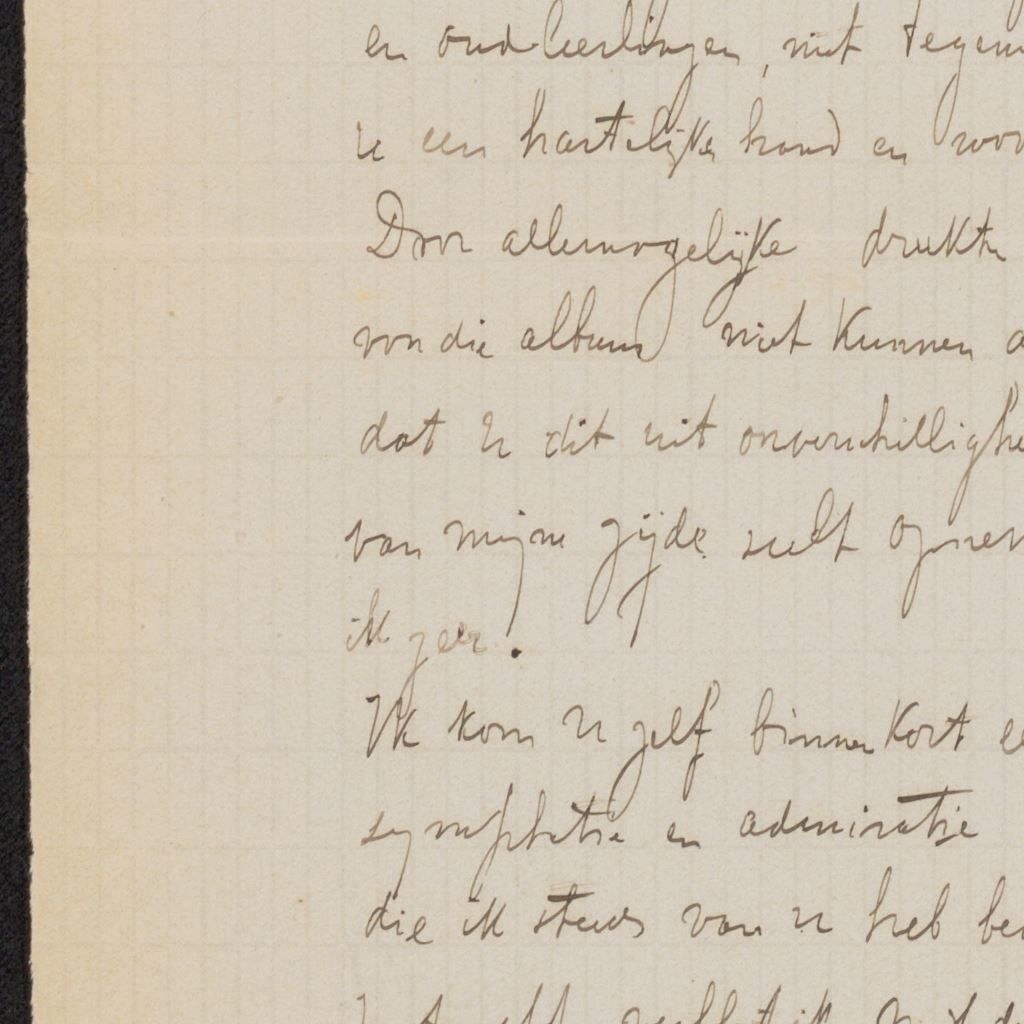 en oudleerlingen, niet tegen
u een hartelijke hand en woor
Door allemogelijke drukte
van die album niet kunnen a
dat U dit uit onverschillighe
van mijne zijde zult opnem
ik zeer.
Ik kom U zelf binnenkort ee
symphatie en admiratie
die ik steeds van U heb be